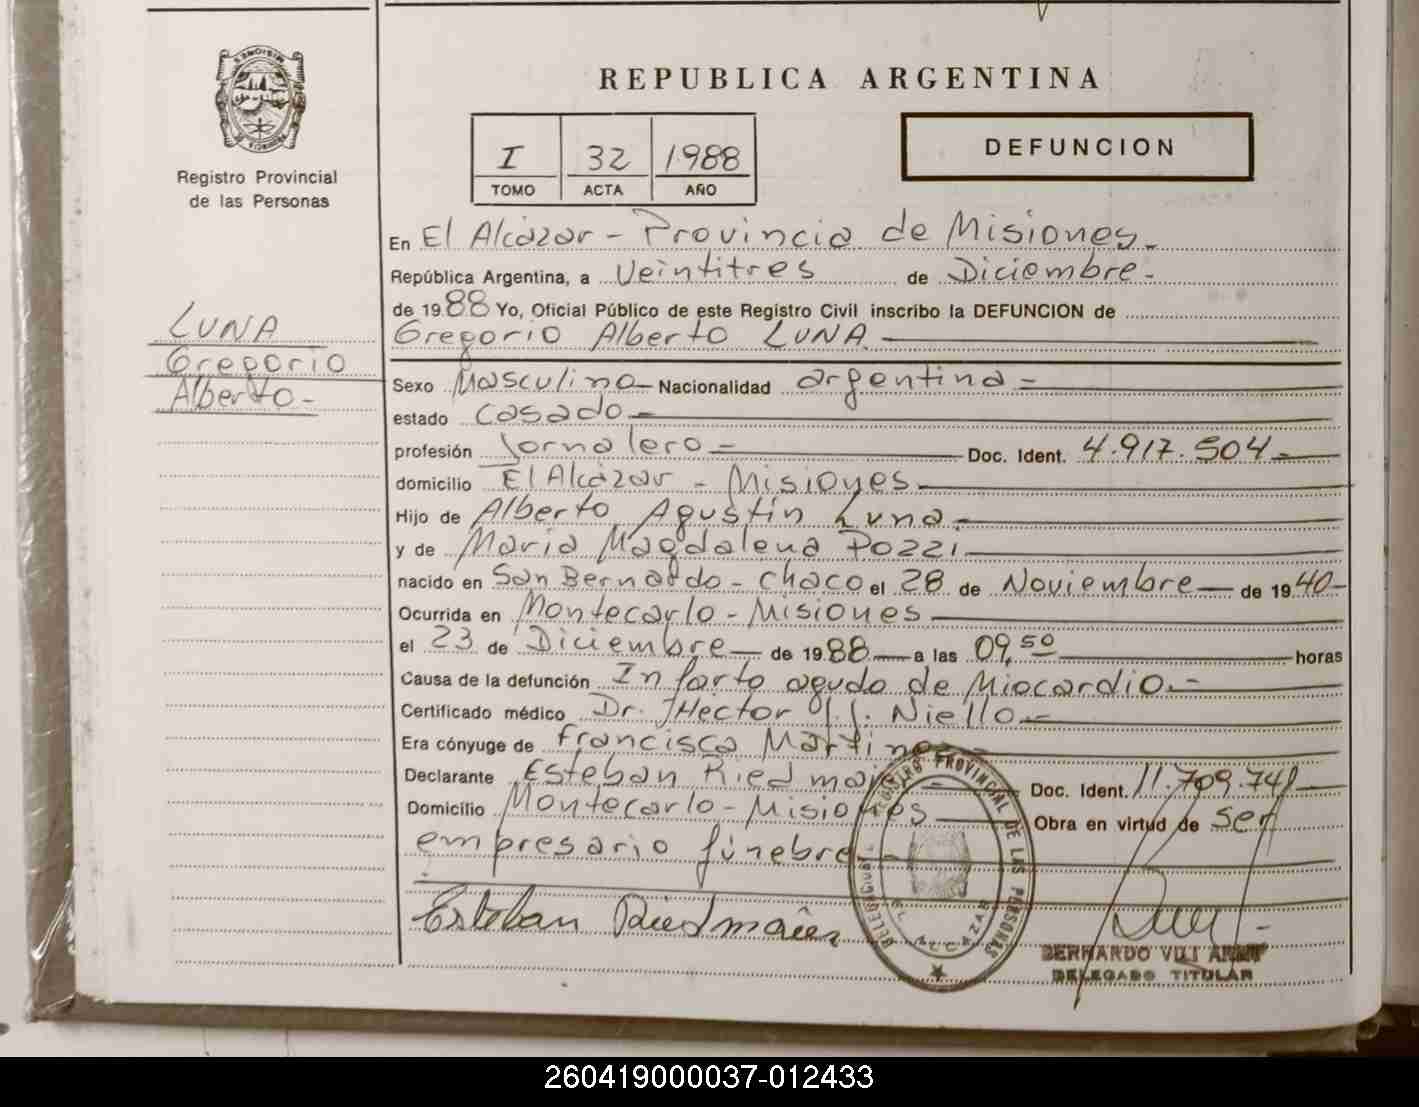 MISIONES
PROVINCIA DE
Registro Provincial
de las Personas
LUNA
Gregorio
Alberto -
REPUBLICA ARGENTINA
I 32 1988
TOMO ACTA AÑO
DEFUNCION
En El Alcázar - Provincia de Misiones -
República Argentina, a Veintitres de Diciembre -
de 1988 Yo, Oficial Público de este Registro Civil inscribo la DEFUNCION de
Gregorio Alberto LUNA
Sexo Masculino Nacionalidad argentina
estado Casado
profesión Jornalero Doc. Ident. 4.917.504
domicilio El Alcázar - Misiones
Hijo de Alberto Agustín Luna
y de María Magdalena Pozzi
nacido en San Bernardo - Chaco el 28 de Noviembre de 1940
Ocurrida en Montecarlo - Misiones
el 23 de Diciembre de 1988 a las 09,50 horas
Causa de la defunción Infarto agudo de Miocardio.-
Certificado médico Dr. Hector J. Niello
Era cónyuge de Francisca Martinez
Declarante Esteban Riedmaier Doc. Ident. 11.709.741
Domicilio Montecarlo - Misiones Obra en virtud de Ser
empresario fúnebre
Esteban Riedmaier
REGISTRO PROVINCIAL DE LAS PERSONAS
DELEGACION
EL ALCAZAR
BERNARDO
DELEGADO TITULAR
260419000037-012433